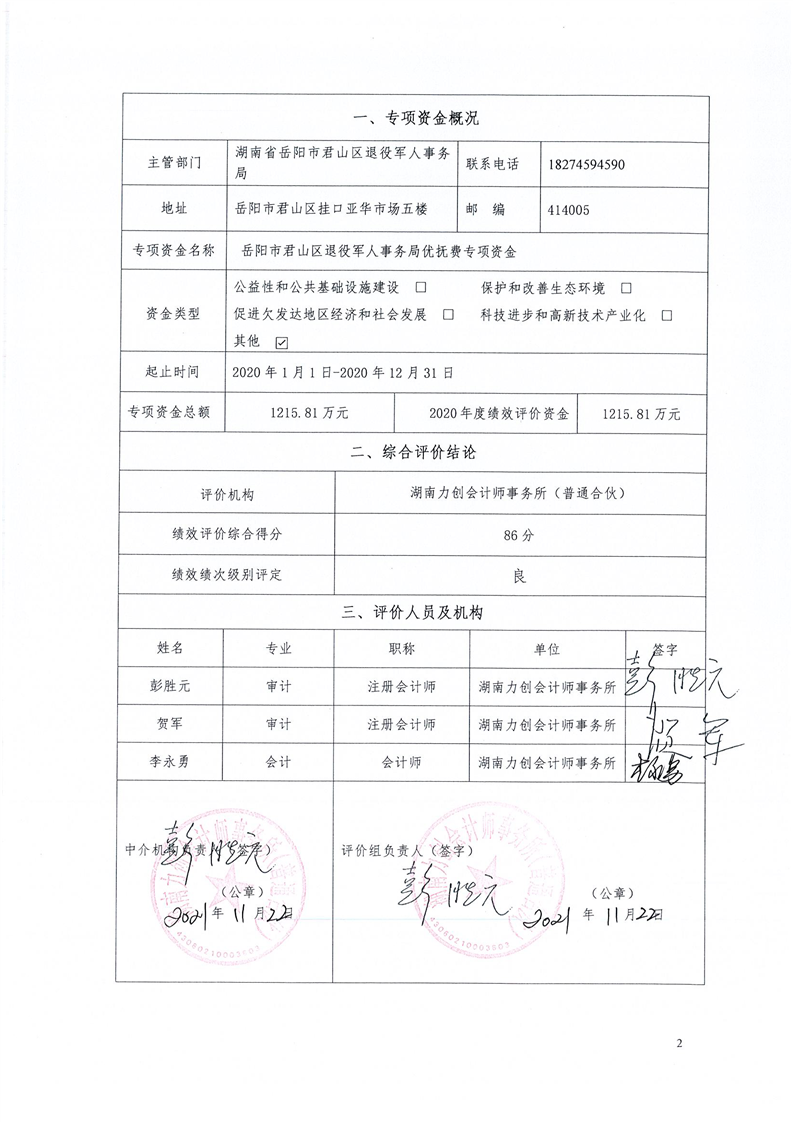 一、专项资金概况
主管部门 湖南省岳阳市君山区退役军人事务局 联系电话 18274594590
地址 岳阳市君山区挂口亚华市场五楼 邮 编 414005
专项资金名称 岳阳市君山区退役军人事务局优抚费专项资金
资金类型
公益性和公共基础设施建设 □ 保护和改善生态环境 □
促进欠发达地区经济和社会发展 □ 科技进步和高新技术产业化 □
其他 ☑
起止时间 2020年1月1日-2020年12月31日
专项资金总额 1215.81万元 2020年度绩效评价资金 1215.81万元
二、综合评价结论
评价机构 湖南力创会计师事务所（普通合伙）
绩效评价综合得分 86分
绩效绩次级别评定 良
三、评价人员及机构
姓名 专业 职称 单位 签字
彭胜元 审计 注册会计师 湖南力创会计师事务所 彭胜元
贺军 审计 注册会计师 湖南力创会计师事务所 贺军
李永勇 会计 会计师 湖南力创会计师事务所
中介机构负责人（签字） 彭胜元
（公章）
2021年11月22日
评价组负责人（签字）
彭胜元
（公章）
2021年11月22日
2